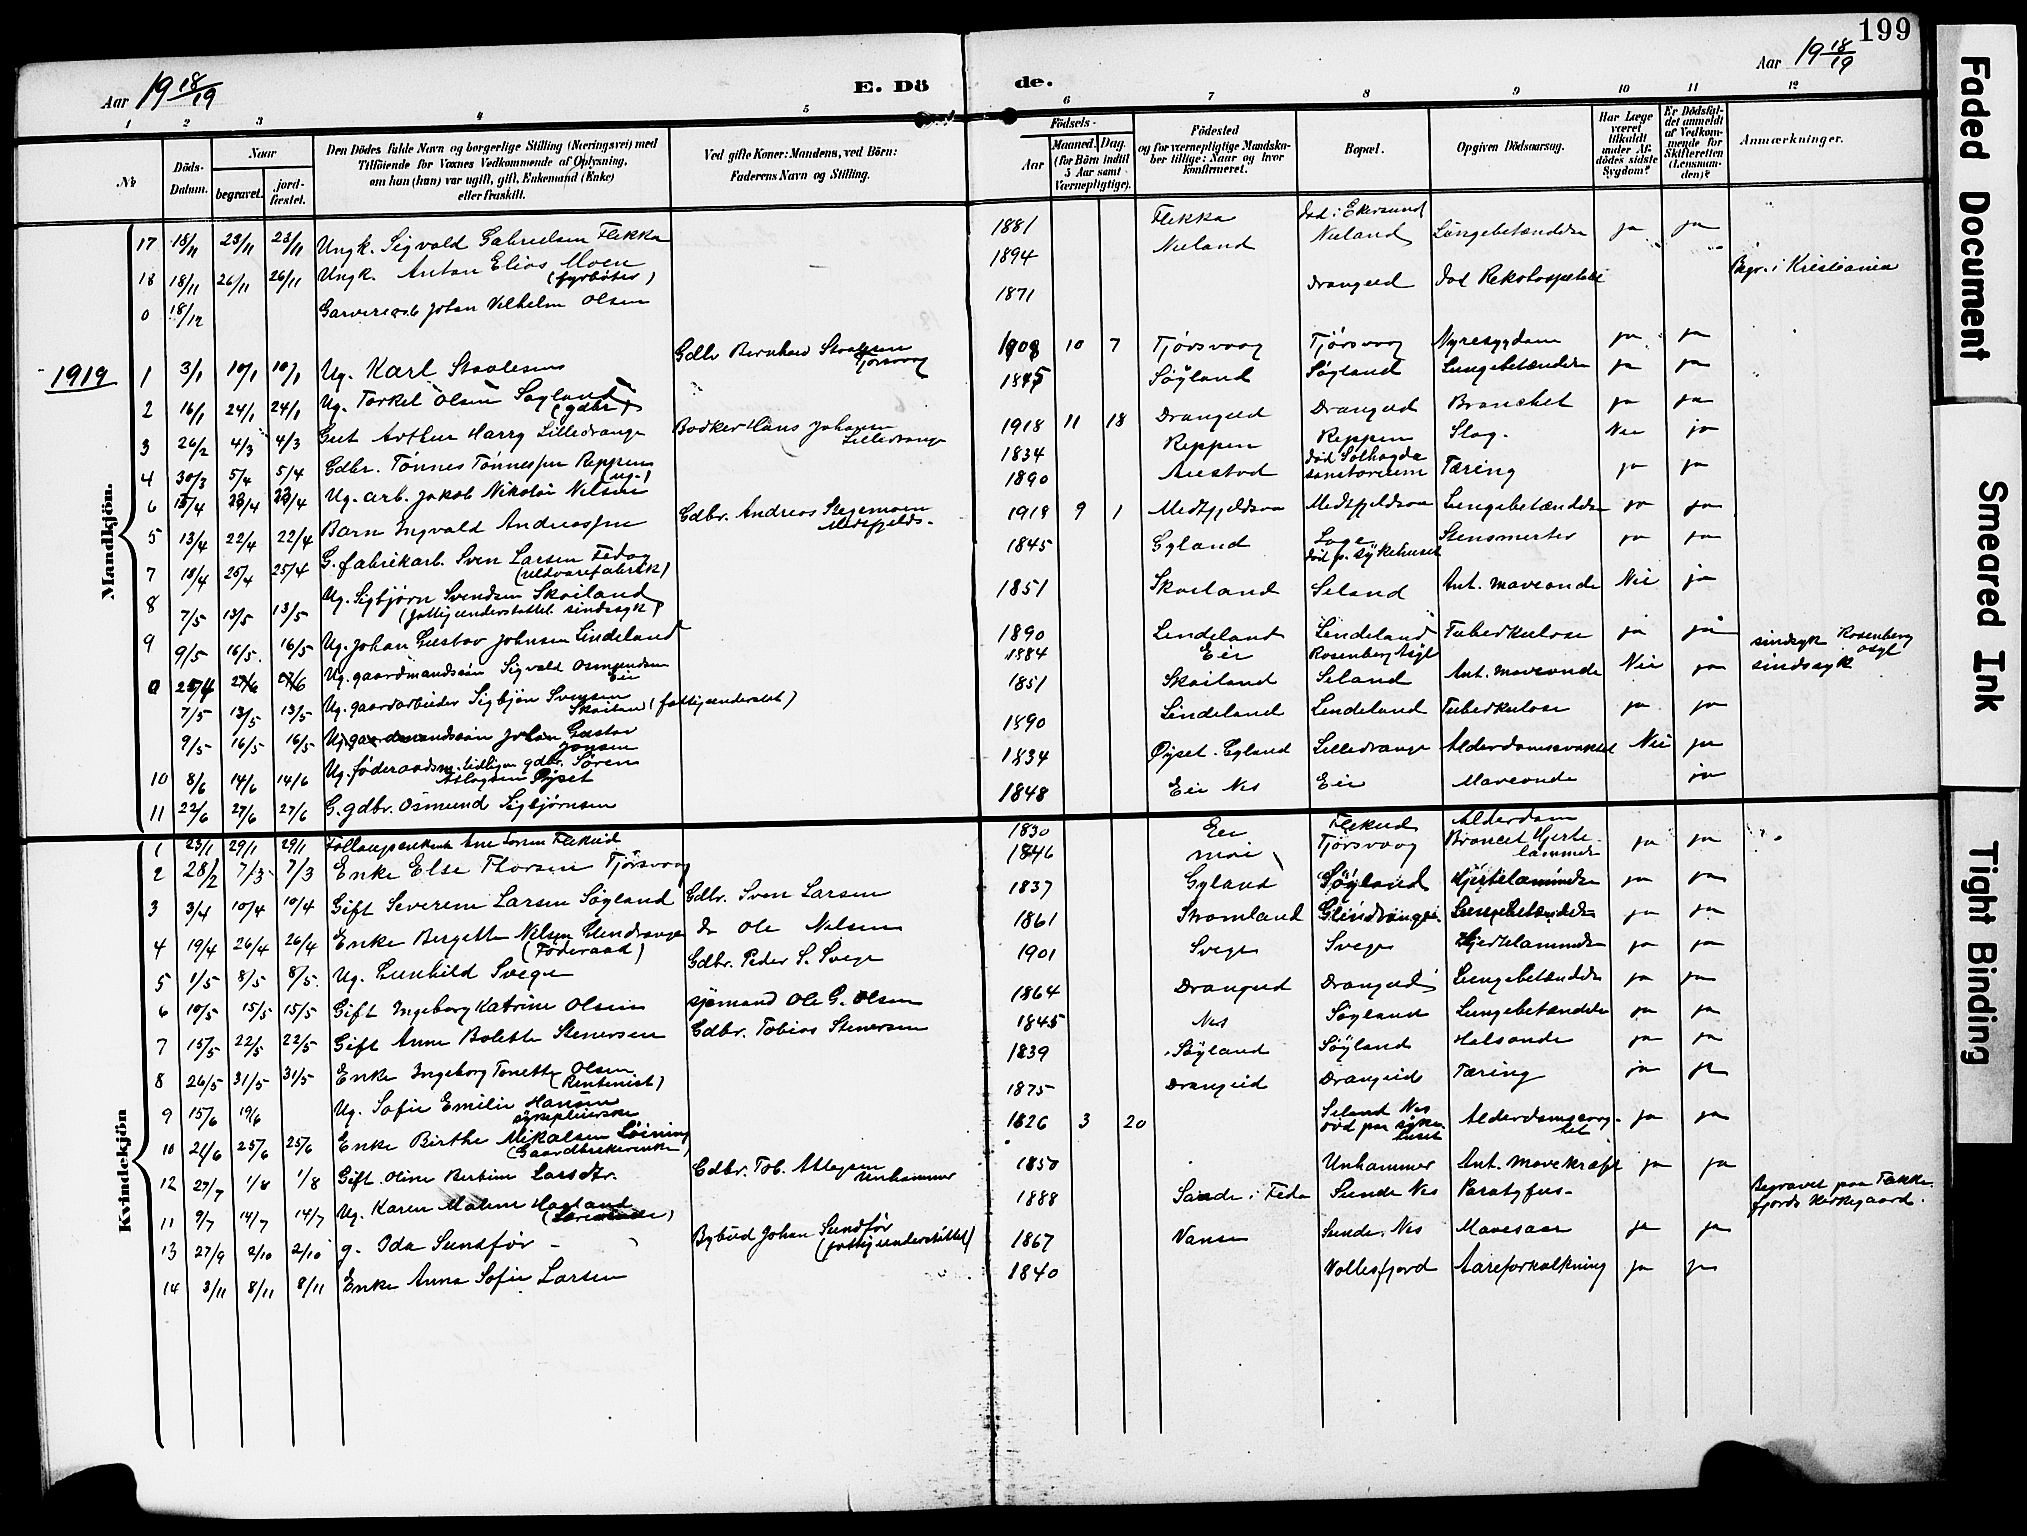 199
Aar 19 18/19
E. Dö de.
Aar 19 18/19
1 2 3 4 5 6 7 8 9 10 11 12
№
Döds-Datum.
Naar
begravet.
jord-fæstet.
Den Dödes fulde Navn og borgerlige Stilling (Næringsvei) med
Tilföiende for Voxnes Vedkommende af Oplysning,
om hun (han) var ugift, gift, Enkemand (Enke)
eller fraskilt.
Ved gifte Koner: Mandens, ved Börn:
Faderens Navn og Stilling.
Födsels-
Aar
Maaned. Dag.
(for Börn indtil
5 Aar samt
Værnepligtige).
Födested
og for værnepligtige Mandska-
ber tillige: Naar og hvor
konfirmeret.
Bopæl.
Opgiven Dödsaarsag.
Har Læge
været
tilkaldt
under Af-
dødes sidste
Sygdom?
Er Dödsfal-
det anmeldt
af Vedkom-
mende for
Skifteretten
(Lensman-
den)?
Anmærkninger.
Mandkjön.
17 18/11 23/11 23/11 Ungk. Sigvald Gabrielsen Flikka 1881 Flikka Död i Ekersund
18 18/11 26/11 26/11 Ungk. Anton Elias Moen (fyrbøter) 1894 Nuland Nuland Lungebetændelse ja ja
0 18/12 Garveriarb Johan Vilhelm Olsen 1871 Drangeid Begr. i Kristiania
1919
1 3/1 10/1 10/1 Ug. Karl Staalesen Gdbr Bernhard Staalesen Tjørsvaag 1908 10 7 Tjörsvaag Tjörsvaag Nyresygdom ja ja
2 16/1 24/1 24/1 Ug. Torkel Olsen Søyland (gdbr) 1845 Søyland Søyland Lungebetændelse ja ja
3 26/2 4/3 4/3 Gut Arthur Harry Lilledrange Bødker Hans Johansen Lilledrange 1918 11 18 Drangeid Drangeid Bronchet ja ja
4 30/3 5/4 5/4 Gdbr. Tönnes Tönnessen Reppen (ug.) 1834 Reppen Reppen Slag. Nei ja
6 15/4 23/4 23/4 Ug. arb. Jakob Nikolai Nilsen 1890 Auestod död Sølhøgda sanatorium Tæring ja ja
5 13/4 22/4 22/4 Barn Ingvald Andreassen Gdbr. Andreas Stegemoen Medtfjelds- 1918 9 1 Medtfjeldsaa Medtfjeldsaa Lungebetændelse ja ja
7 18/4 25/4 25/4 G. fabrikarb. Sven Larsen Fedog (uldvarefabrikk) 1845 Gyland Loge död p. sykehuset Stensmerter ja ja
8 7/5 13/5 13/5 Ug. Sigbjørn Svendsen Skoiland (fattigunderstøttet sindssyk) 1851 Skoiland Seland Ant. maveonde Nei ja
9 9/5 16/5 16/5 Ug. Johan Gustav Johnsen Lindeland 1890 Lindeland Lindeland Tuberkulose ja ja
0 Ug. gaardmandssøn Sigvald Osmundsen Eie 1884 Eie Rosenberg Asyl sindsyk Rosenberg Asyl
7/5 13/5 13/5 Ug. gaardarbeider Sigbjørn Svensen Skoilan (fattigunderstøt) 1851 Skoiland Seland Ant. maveonde Nei ja sindssyk
9/5 16/5 16/5 Ug. gaardmandssøn Johan Gustav Jonsen 1890 Lindeland Lindeland Tuberkulose ja ja
10 8/6 14/6 14/6 Ug. føderaadsm. tidligere gdbr. Søren Atlagsen Øyset 1834 Øyset. Gyland Lilledrange Alderdomssvakhet Nei ja
11 22/6 27/6 27/6 G. gdbr. Osmund Sigbjørnsen 1848 Eie Nes Eie Maveonde ja
Kvindekjön
1 23/1 29/1 29/1 1830 Eie Flikeid Alderdom
2 28/2 7/3 7/3 Enke Else Thorsen Tjørsvaag 1846 Moi Tjørsvaag Broncet Hjertelammelse ja ja
3 3/4 10/4 10/4 Gift Severine Larsen Søyland Gdbr. Sven Larsen 1837 Gyland Søyland Hjertelammelse ja ja
4 19/4 26/4 26/4 Enke Bergette Nilsen Glendrange (Föderaad) do Ole Nilsen 1861 Stromland Glendrange. Lungebetændelse ja ja
5 1/5 8/5 8/5 Ug. Gunhild Svege Gdbr. Peder S. Svege 1901 Svege Svege Hjertelammelse ja ja
6 10/5 15/5 15/5 Gift Ingeborg Katrine Olsen sjømand Ole G. Olsen 1864 Drangeid Drangeid Lungebetændelse ja ja
7 15/5 22/5 22/5 Gift Anne Bolette Stenersen Gdbr. Tobias Stenersen 1845 Nes Søyland Lungebetændelse ja ja
8 26/5 31/5 31/5 Enke Ingeborg Tonette Olsen (Rentenist) 1839 Søyland Søyland Halsonde ja ja
9 15/6 19/6 Ug. Sofie Emilie Hansen sykepleierske 1875 Drangeid Drangeid Tæring ja ja
10 21/6 25/6 25/6 Enke Birthe Mikalsen Løining (Gaardbrukerenke) 1826 3 20 Seland Nes Alderdomssvaghet ja ja
12 27/7 1/8 1/8 Gift Oline Bertine Larsdtr. Gdbr. Tob. Atlagsen Unhammer 1850 Unhammer Ant. mavekræft ja ja
11 9/7 14/7 14/7 Ug. Karen Malene Hagland 1888 Sande i Feda Sunde Nes Paratyfus- Begravet paa Fække fjords kirkegaard.
13 27/9 2/10 2/10 g. Oda Sundfør - Bybud Johan Sundför (fattigunderstöttet) 1867 Vanse Sunde. Nes Mavesaar ja ja
14 3/11 8/11 8/11 Enke Anna Sofie Larsen 1840 Vollesfjord Aareforkalkning ja ja
Faded Document
Smeared Ink
Tight Binding